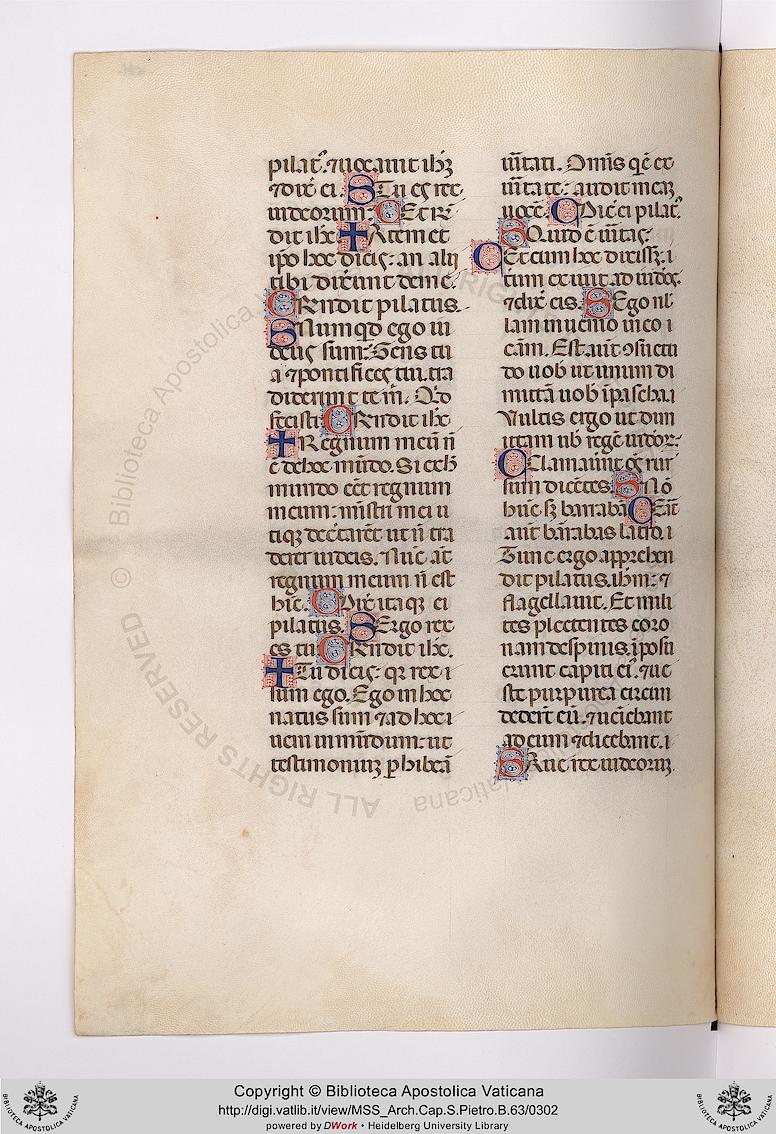 pilat᷒. ⁊uocauit ih̄ꝫ
⁊dix̄ ei. S Tu es rex
iudeorum: C Et rn̄
dit ihc̄ ✝ A temet
ip̄o hoc dicis: an alij
tibi dixerunt de me.
C Rn̄dit pilatus.
S Numqd̄ ego iu
deus sum: Gens tu
a ⁊pontifices tui. tra
diderunt te m̄. Qd̄
fecisti: C Rn̄dit ihc̄
✝ Regnum meū n̄
ē de hoc mūdo. Si ex h̄
mundo eēt regnum
meum: mīstri mei u
tiqꝫ decertarēt ut n̄ tra
derer iudeis. Nūc aūt
regnum meum n̄ est
hīc. C Dix̄ itaqꝫ ei
pilatus. S Ergo rex
es tu: C Rn̄dit ihc̄.
✝ Tu dicis: qr rex i
sum ego. Ego in hoc
natus sum ⁊ad hoc i
ueni in mūdum: ut
testimoniuꝫ p̱hibeā
u̅itati. Omīs qi ē ex
u̅itate: audit meaꝫ
uocē. C Dic̄ ei pilat᷒.
S Quid ē u̅itas:
C Et cum hoc dixissꝫ. i
tum exiuit ad iudeos.
⁊dix̄ eis. S Ego nl̄
lam inuenio in eo i
cām. Est aut̄ ꝯsuetu
do uob̄ ut unum di
mittā uob̄ ī pascha. i
Vultis ergo ut dim
ittam uob̄ regē iudeoꝝ:
C Clamauūt oēs rur
sum dicētes. S Nō
hūc sꝫ barrabā. C Erat
aut̄ barrabas latro. i
Tunc ergo apprehen
dit pilatus. ihm̄: ⁊
flagellauit. Et mili
tes plectentes coro
nam de spinis. īposu
erunt capiti ei᷒. ⁊ue
ste purpurea circun
dedert̄ eū. ⁊ueniebant
ad eum ⁊dicebant. i
S Aue rex iudeoruꝫ.
© Biblioteca Apostolica Vaticana
ALL RIGHTS RESERVED
Copyright © Biblioteca Apostolica Vaticana
http://digi.vatlib.it/view/MSS_Arch.Cap.S.Pietro.B.63/0302
powered by DWork • Heidelberg University Library
BIBLIOTECA APOSTOLICA VATICANA
BIBLIOTECA APOSTOLICA VATICANA